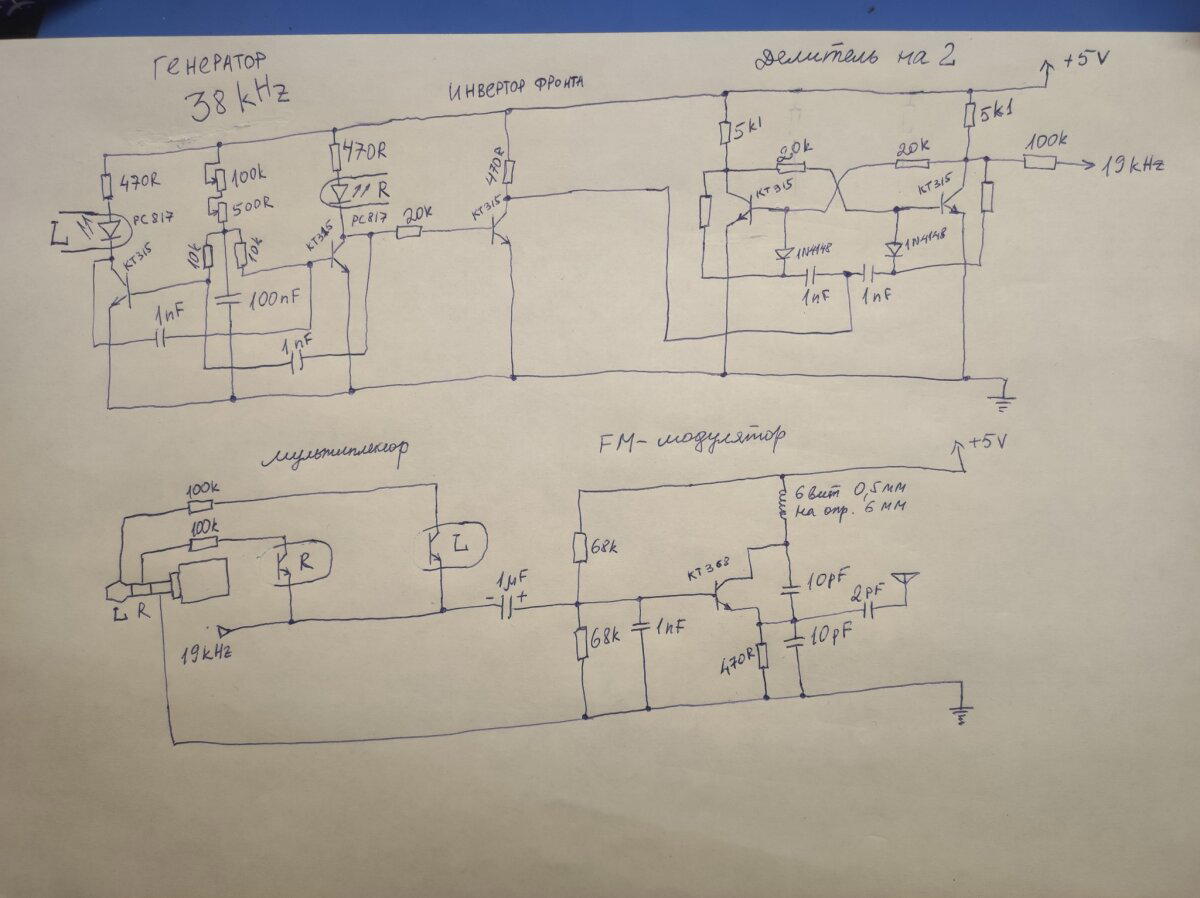 ГЕНЕРАТОР
38 kHz
ИНВЕРТОР ФРОНТА
Делитель на 2
+5V
470R
100k
500R
470R
470R
5k1
20k
20k
5k1
100k
19kHz
L
PC817
R
PC817
20k
КТ315
КТ315
КТ315
КТ315
КТ315
10k
10k
1N4148
1N4148
100nF
1nF
1nF
1nF
1nF
мультиплексор
FM-модулятор
+5V
100k
100k
R
L
6 вит 0,5мм
на опр. 6 мм
68k
КТ368
1µF
- +
10pF
2pF
L R
19kHz
68k
1nF
470R
10pF